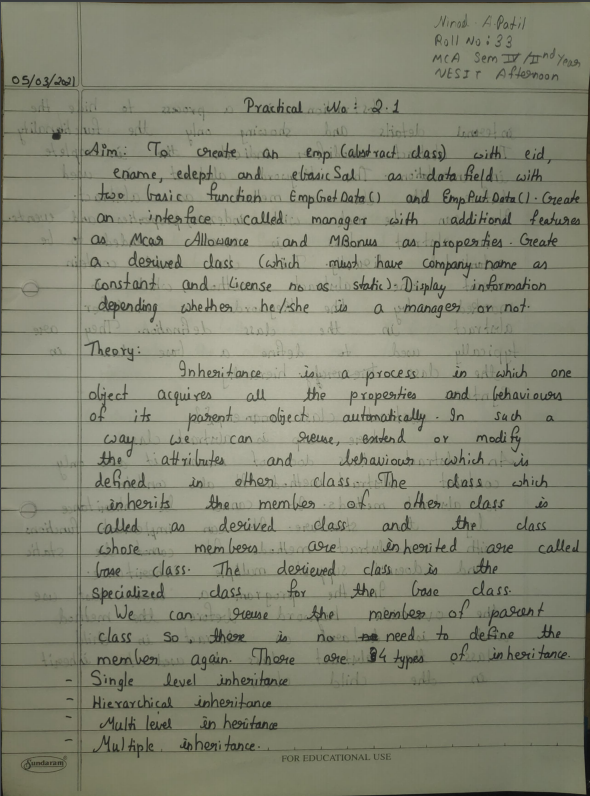 Ninad A. Patil
Roll No: 33
MCA Sem IV / IInd Year
NESIT Afternoon
05/03/2021
Practical No: 2.1
Aim: To create an emp (abstract class) with eid,
ename, edept and ebasicSal as data field with
two basic function EmpGetData() and EmpPutData(). Create
an interface called manager with additional features
as Mcar Allowance and MBonus as properties. Create
a derived class (which must have company name as
constant and License no as static). Display information
depending whether he/she is a manager or not.
Theory:
Inheritance is a process in which one
object acquires all the properties and behaviours
of its parent object automatically. In such a
way we can reuse, extend or modify
the attributes and behaviour which is
defined in other class. The class which
inherits the member of other class is
called as derived class and the class
whose members are inherited are called
base class. The derieved class is the
specialized class for the base class.
We can reuse the member of parent
class so, there is no need to define the
member again. There are 4 types of inheritance.
- Single level inheritance
- Hierarchical inheritance
- Multi level inheritance
- Multiple inheritance.
Sundaram
FOR EDUCATIONAL USE